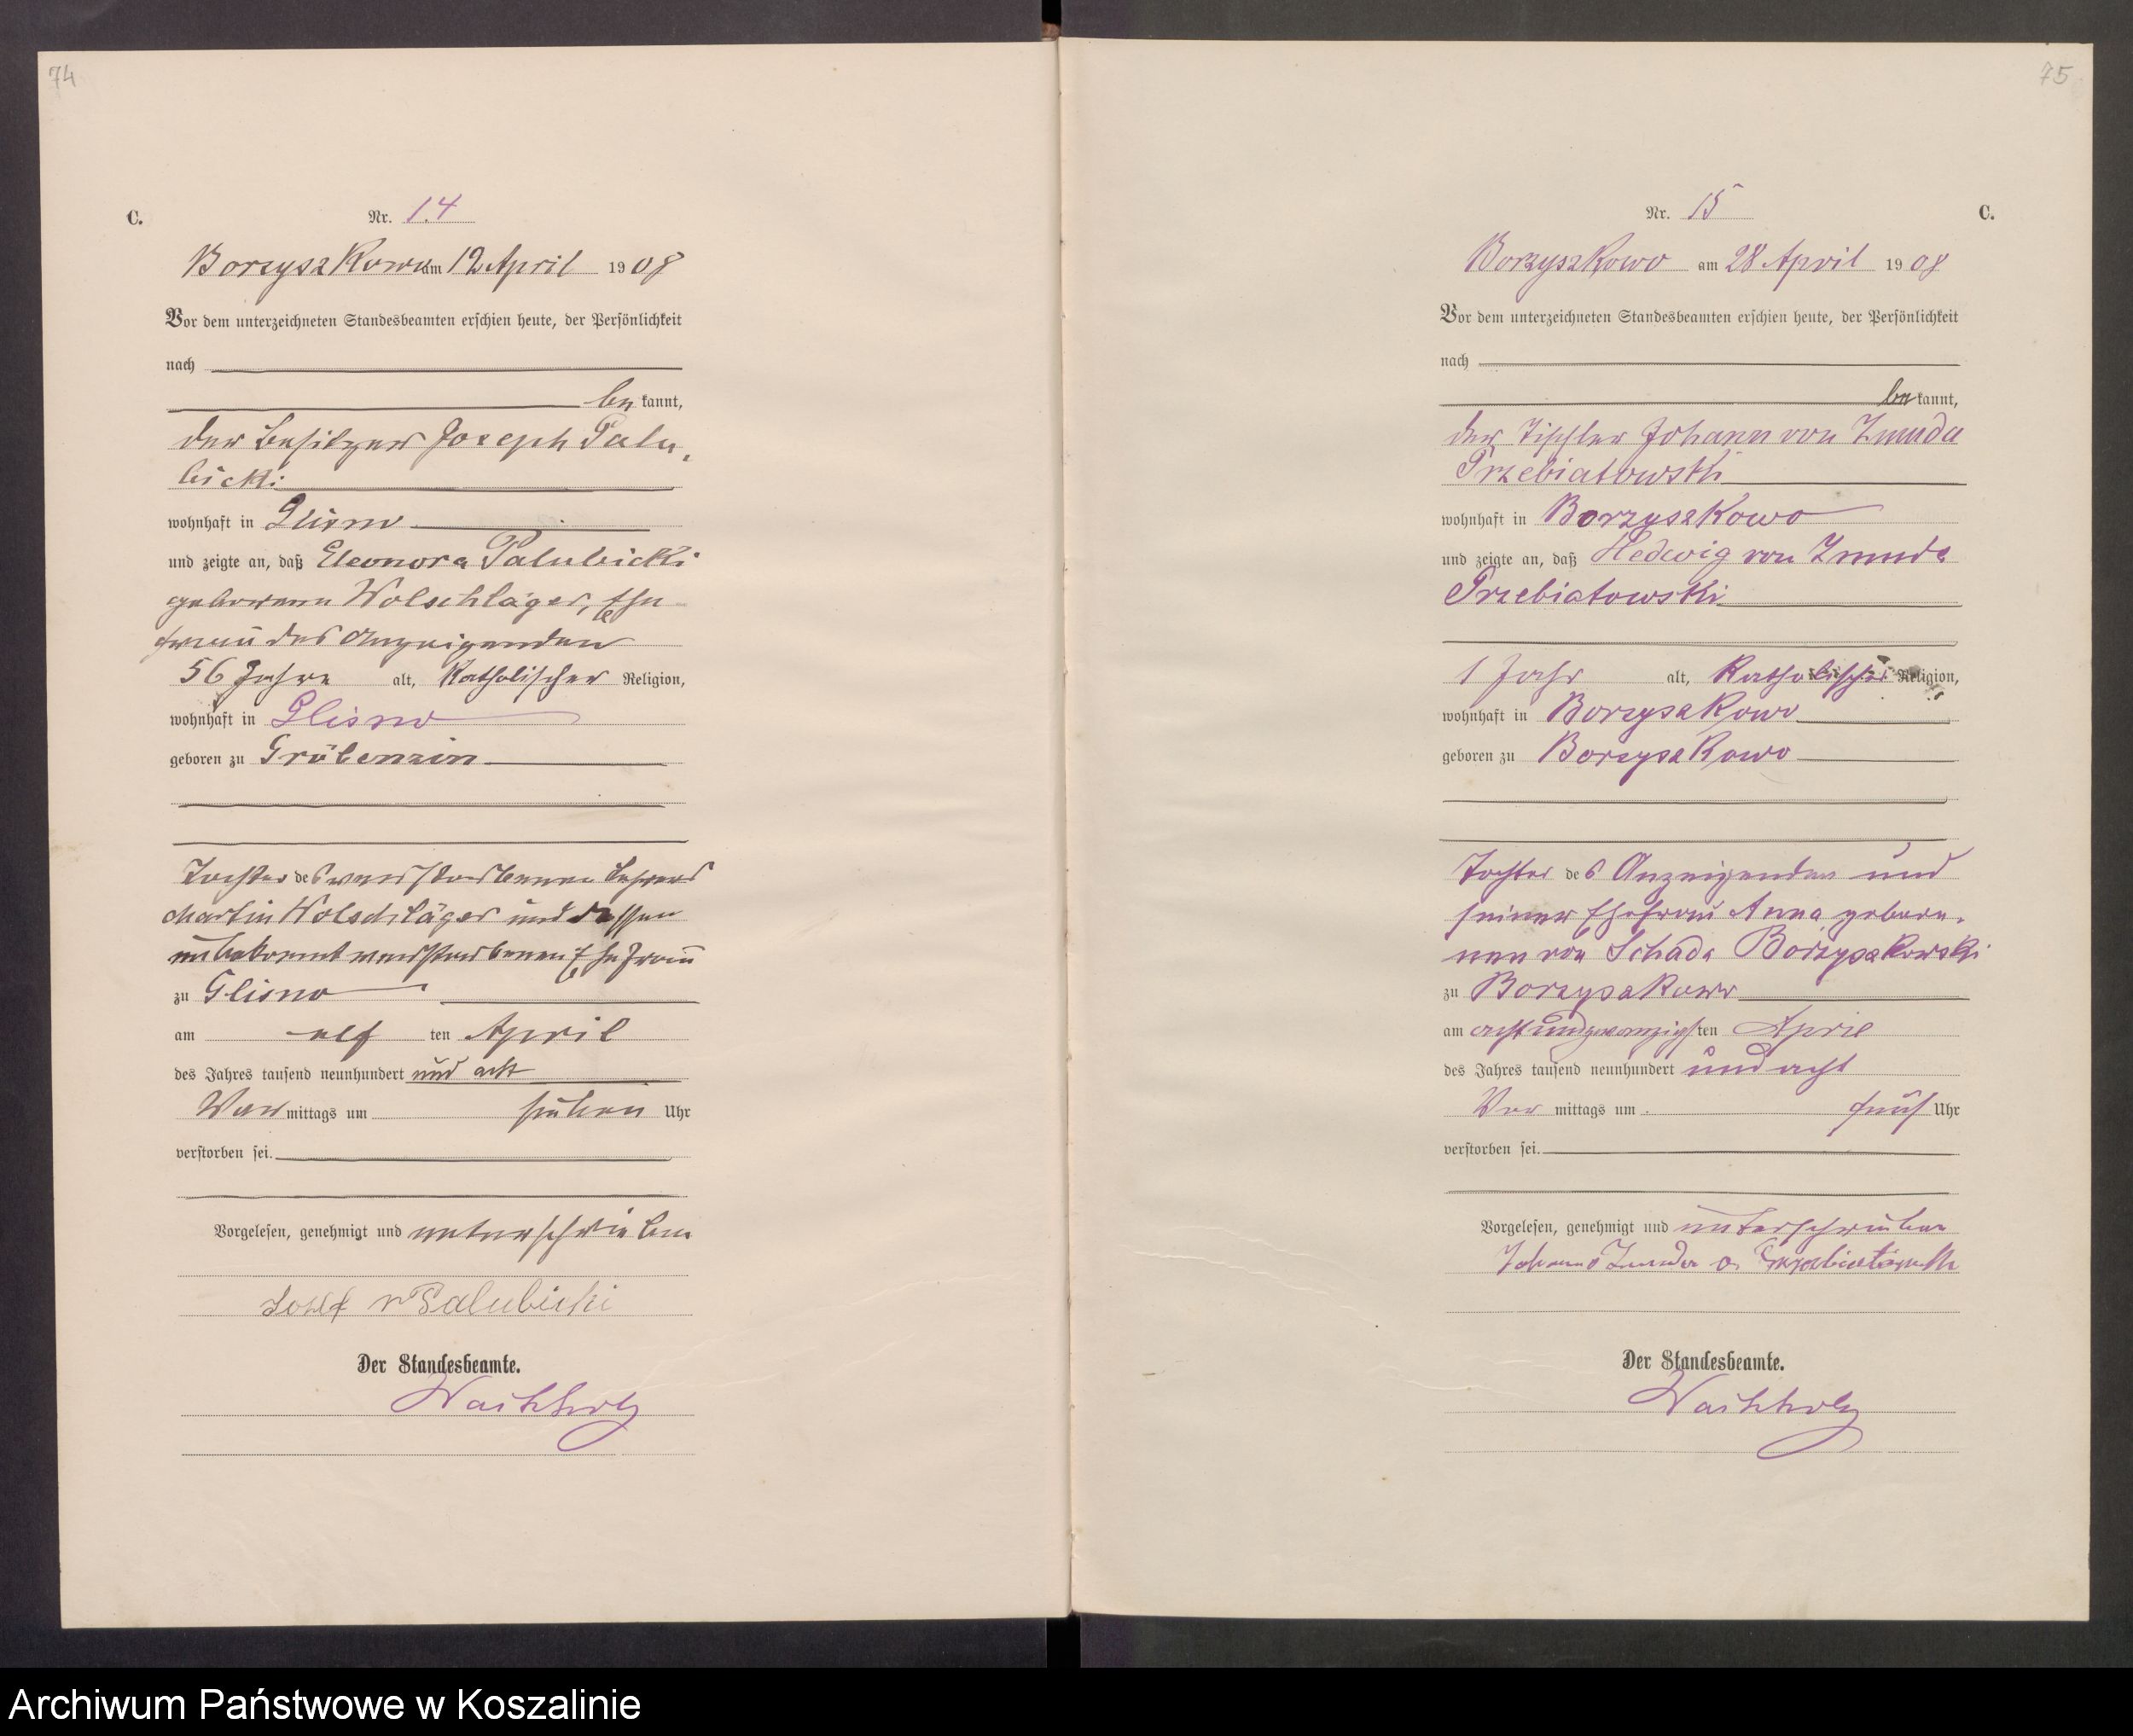 74
C.
Nr. 14
Borzyszkowo am 12 April 1908
Vor dem unterzeichneten Standesbeamten erschien heute, der Persönlichkeit
nach
be kannt,
der Besitzer Joseph Palu-
bicki
wohnhaft in Glisno
und zeigte an, daß Eleonora Palubicki
geborene Wolschläger, Ehe
frau des Anzeigenden
56 Jahre alt, katholischer Religion,
wohnhaft in Glisno
geboren zu Gröbenzin
Tochter des verstorbenen Lehrers
Martin Wolschläger und dessen
unbekannt verstorbenen Ehefrau
zu Glisno
am elf ten April
des Jahres tausend neunhundert und acht
Vor mittags um sieben Uhr
verstorben sei.
Vorgelesen, genehmigt und unterschrieben
Josef v Palubicki
Der Standesbeamte.
Wachholz
75
Nr. 15
C.
Borzyszkowo am 28 April 1908
Vor dem unterzeichneten Standesbeamten erschien heute, der Persönlichkeit
nach
be kannt,
der Tischler Johann von Zmuda
Przebiatowski
wohnhaft in Borzyszkowo
und zeigte an, daß Hedwig von Zmuda
Przebiatowski
1 Jahr alt, katholischer Religion,
wohnhaft in Borzyszkowo
geboren zu Borzyszkowo
Tochter des Anzeigenden und
seiner Ehefrau Anna gebore-
nen von Schada Borzyszkowski
zu Borzyszkowo
am achtundzwanzigsten April
des Jahres tausend neunhundert und acht
Vor mittags um fünf Uhr
verstorben sei.
Vorgelesen, genehmigt und unterschrieben
Johann Zmuda
Der Standesbeamte.
Wachholz
Archiwum Państwowe w Koszalinie